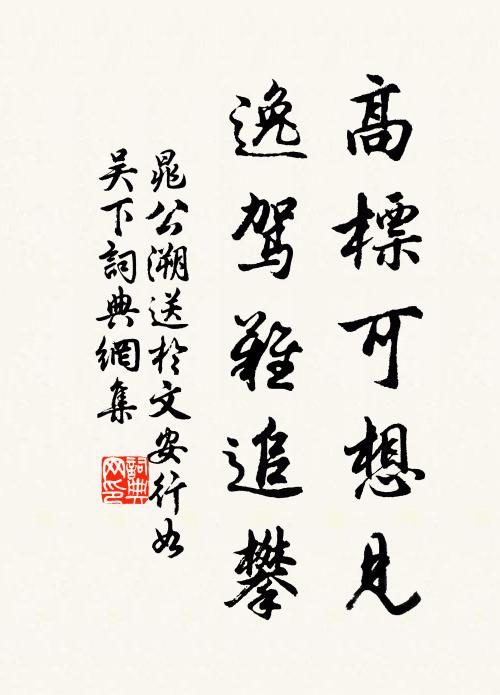 高標可想見
逸駕難追攀
晁公溯送於文安行如
吴下詞典網集
詞典网印